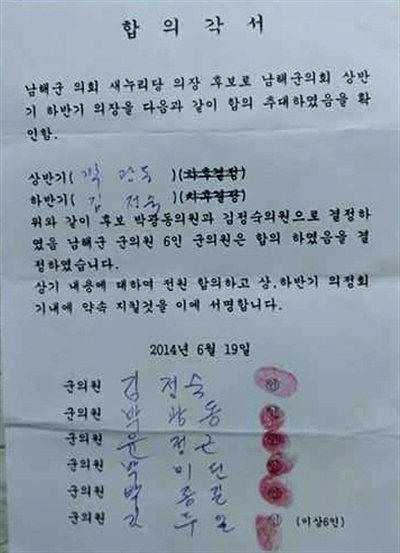 합 의 각 서
남해군 의회 새누리당 의장 후보로 남해군의회 상반
기 하반기 의장을 다음과 같이 합의 추대하였음을 확
인함.
상반기( 박 광 동 )(차후결정)
하반기( 김 정숙 )(차후결정)
위와 같이 후보 박광동의원과 김정숙의원으로 결정하
였음 남해군 군의원 6인 군의원은 합의 하였음을 결
정하였습니다.
상기 내용에 대하여 전원 합의하고 상,하반기 의정회
기내에 약속 지킬것을 이에 서명합니다.
2014년 6월 19일
군의원 김 정숙 인
군의원 박 광 동 인
군의원 윤 정 근 인
군의원 박 미 선 인
군의원 박 종 길 인
군의원 김 두 인 (이상6인)